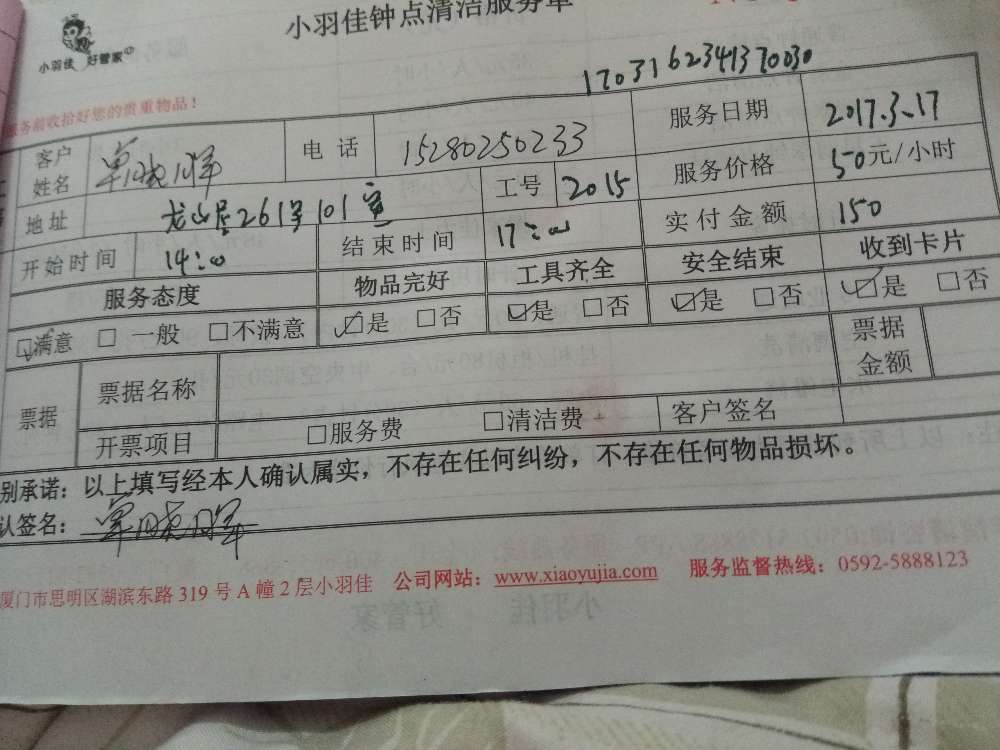 小羽佳钟点清洁服务单
小羽佳 好管家
17031623413 70030
服务前收拾好您的贵重物品！
客户姓名 单晓晖 电话 15280250233 服务日期 2017.3.17
地址 龙山层261号101室 工号 2015 服务价格 50元/小时
开始时间 14:00 结束时间 17:00 实付金额 150
服务态度 物品完好 工具齐全 安全结束 收到卡片
☑满意 □一般 □不满意 ☑是 □否 ☑是 □否 ☑是 □否 ☑是 □否
票据 票据名称 票据金额
开票项目 □服务费 □清洁费 客户签名
别承诺：以上填写经本人确认属实，不存在任何纠纷，不存在任何物品损坏。
认签名： 单晓晖
厦门市思明区湖滨东路319号A幢2层小羽佳 公司网站：www.xiaoyujia.com 服务监督热线：0592-5888123